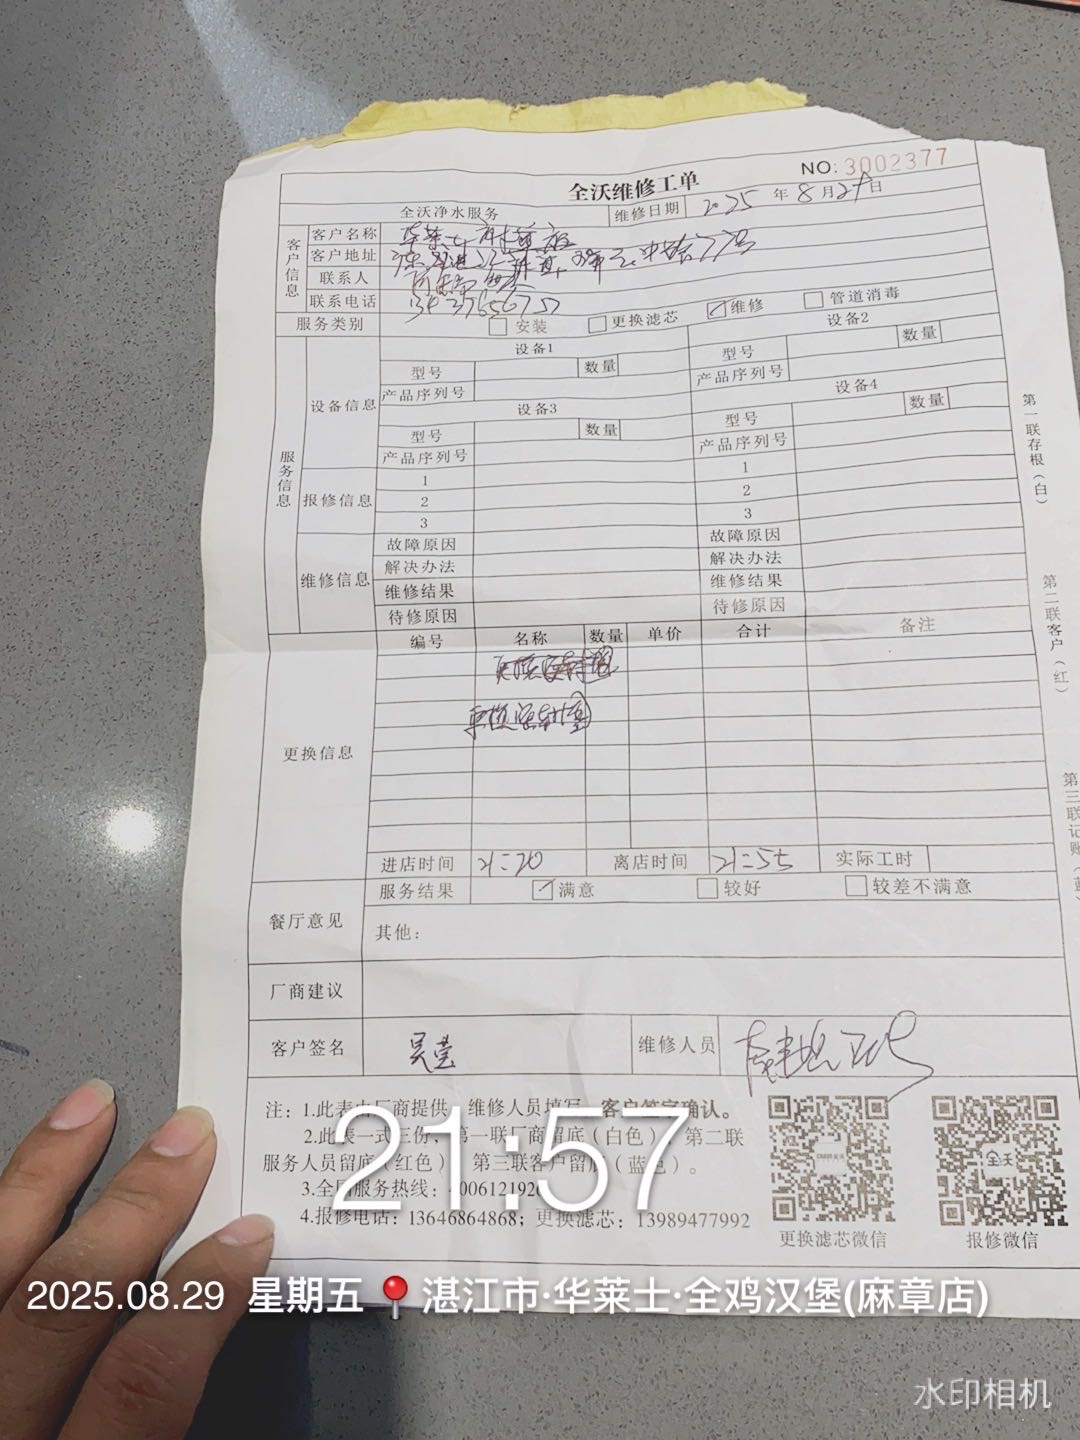 NO: 3002377
全沃维修工单
全沃净水服务 维修日期 2025 年 8 月 29 日
客户信息
客户名称 华莱士
客户地址
联系人
联系电话
服务类别 安装 更换滤芯 维修 管道消毒
服务信息
设备信息
设备1 设备2
型号 数量 型号 数量
产品序列号 产品序列号
设备3 设备4
型号 数量 型号 数量
产品序列号 产品序列号
报修信息
1 1
2 2
3 3
维修信息
故障原因 故障原因
解决办法 解决办法
维修结果 维修结果
待修原因 待修原因
更换信息
编号 名称 数量 单价 合计 备注
进店时间 21:20 离店时间 21:55 实际工时
餐厅意见
服务结果 满意 较好 较差不满意
其他:
厂商建议
客户签名 吴莹 维修人员
注: 1.此表由厂商提供,维修人员填写,客户签字确认。
2.此表一式三份,第一联厂商留底(白色) 第二联
服务人员留底(红色) 第三联客户留底(蓝色)。
3.全国服务热线:
4.报修电话: 13646864868; 更换滤芯: 13989477992
更换滤芯微信 报修微信
第一联存根(白)
第二联客户(红)
第三联记账(蓝)
21:57
2025.08.29 星期五 湛江市·华莱士·全鸡汉堡(麻章店)
水印相机